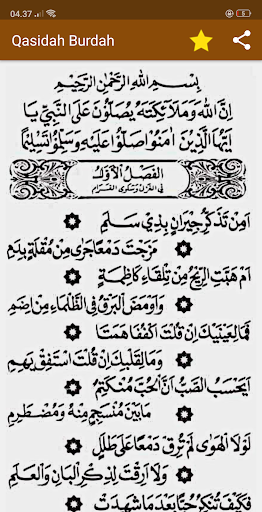 04.37
5
Qasidah Burdah
بِسْمِ اللهِ الرَّحْمٰنِ الرَّحِيْمِ
اِنَّ اللهَ وَمَلَآئِكَتَهُ يُصَلُّوْنَ عَلَى النَّبِيِّ يَا
اَيُّهَا الَّذِيْنَ اٰمَنُوْا صَلُّوْا عَلَيْهِ وَسَلِّمُوْا تَسْلِيْمًا
الفَصْلُ الْاَوَّلُ
فِى الغَزَلِ وَشَكْوَى الغَرَامِ
اَمِنْ تَذَكُّرِ جِيْرَانٍ بِذِيْ سَلَمِ
مَزَجْتَ دَمْعًا جَرٰى مِنْ مُقْلَةٍ بِدَمِ
اَمْ هَبَّتِ الرِّيْحُ مِنْ تِلْقَاءِ كَاظِمَةٍ
وَاَوْمَضَ الْبَرْقُ فِى الظَّلْمَاءِ مِنْ اِضَمِ
فَمَا لِعَيْنَيْكَ اِنْ قُلْتَ اكْفُفَا هَمَتَا
وَمَا لِقَلْبِكَ اِنْ قُلْتَ اسْتَفِقْ يَهِمِ
اَيَحْسَبُ الصَّبُّ اَنَّ الْحُبَّ مُنْكَتِمٌ
مَا بَيْنَ مُنْسَجِمٍ مِنْهُ وَمُضْطَرِمِ
لَوْلَا الْهَوٰى لَمْ تُرِقْ دَمْعًا عَلٰى طَلَلٍ
وَلَا اَرِقْتَ لِذِكْرِ الْبَانِ وَالْعَلَمِ
فَكَيْفَ تُنْكِرُ حُبًّا بَعْدَ مَا شَهِدَتْ